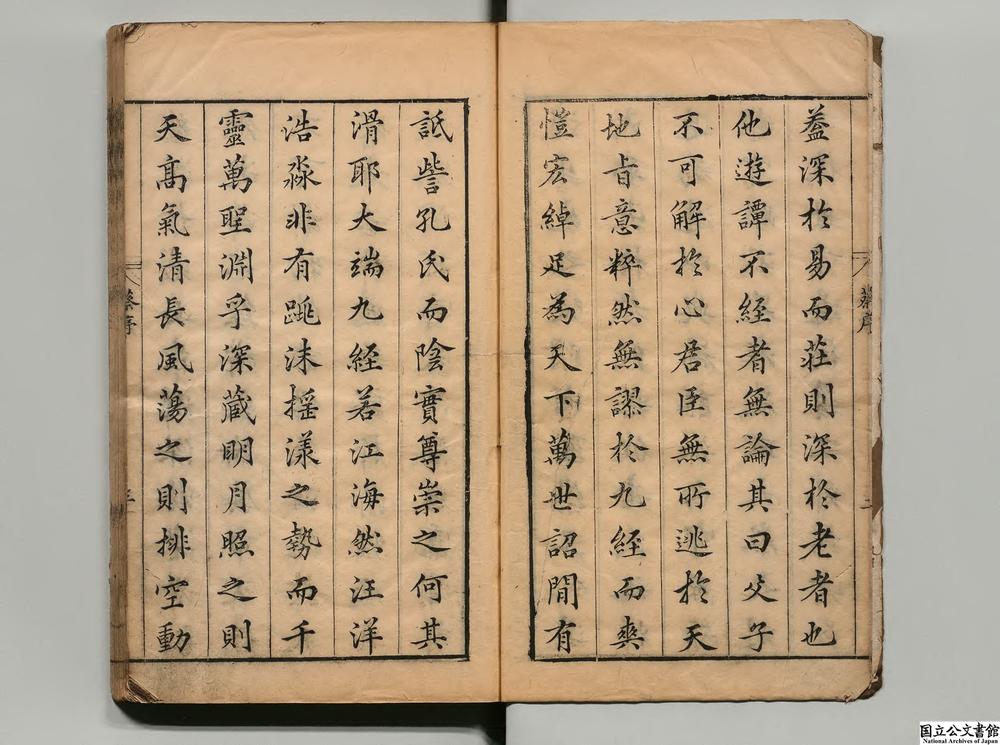 葢深於易而莊則深於老者也
他遊譚不經者無論其曰父子
不可解於心君臣無所逃於天
地旨意粹然無謬於九經而爽
愷宏綽足為天下萬世詔間有
詆訾孔氏而陰實尊崇之何其
滑耶大端九經若江海然汪洋
浩淼非有跳沫揺漾之勢而千
靈萬聖淵孚深藏明月照之則
天高氣清長風蕩之則排空動
蔡序
二
蔡序
三
国立公文書館
National Archives of Japan